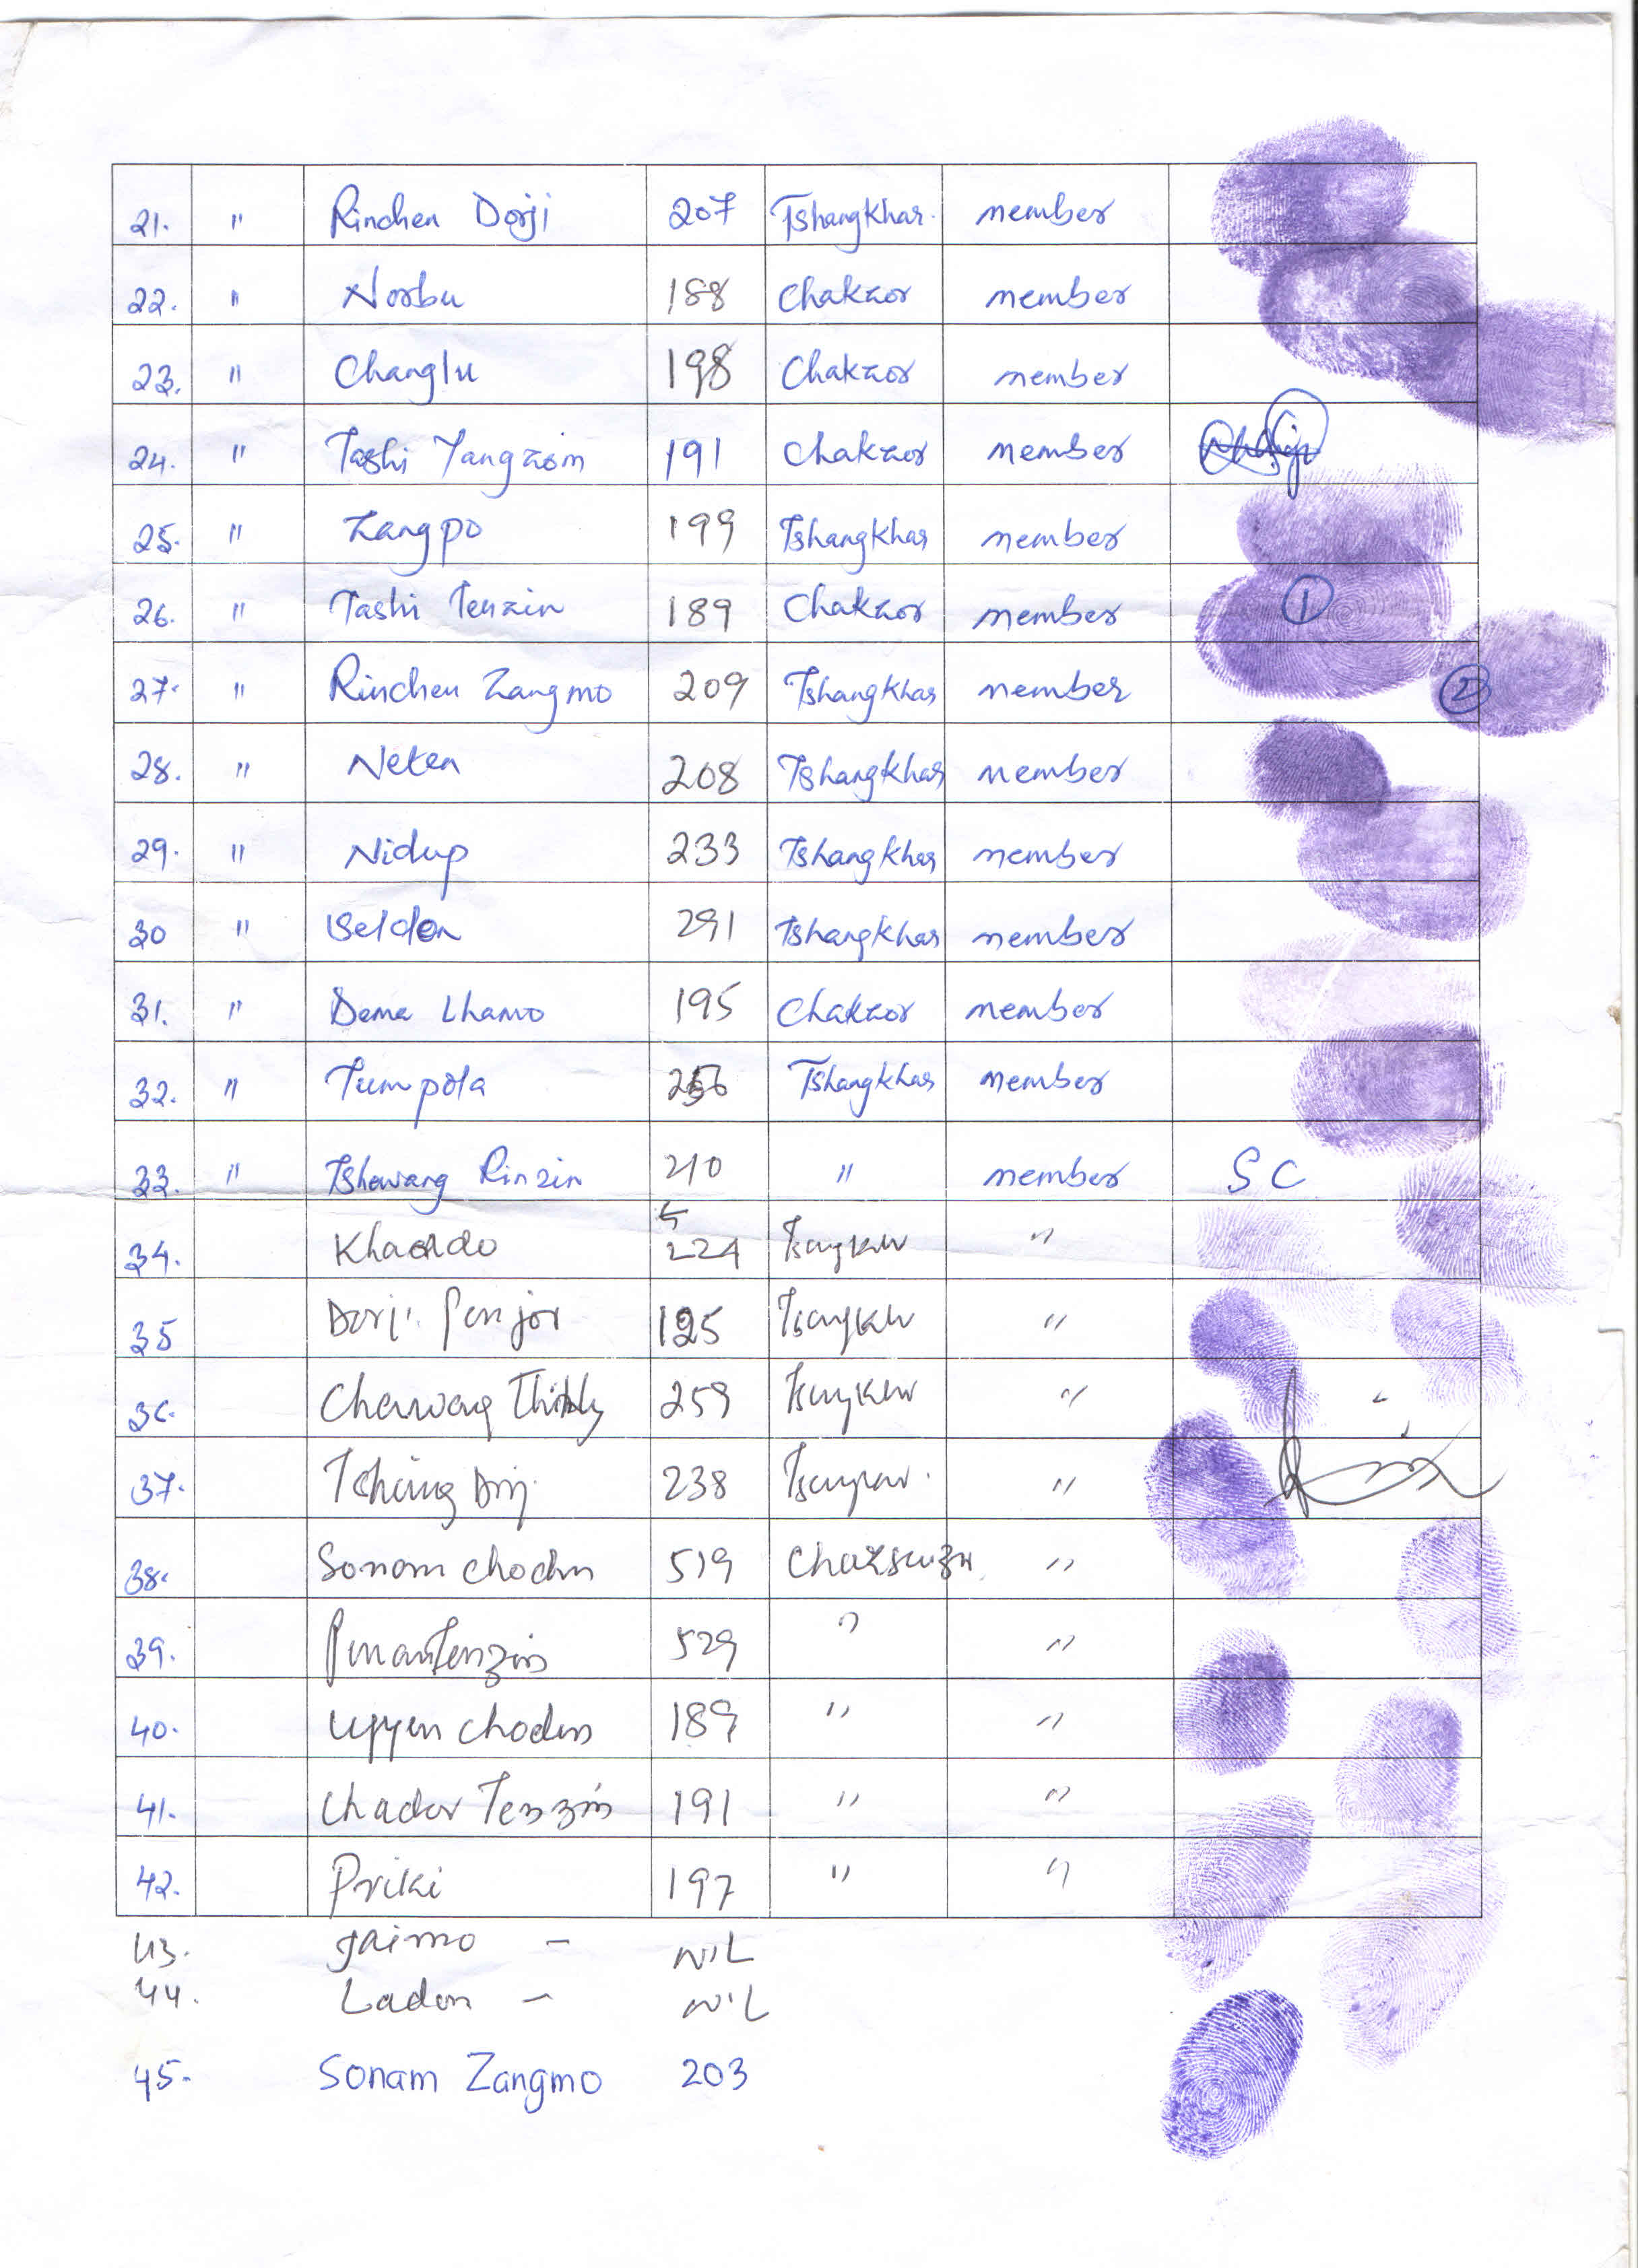 21. " Rinchen Dorji 207 Tshangkhar. member
22. " Norbu 188 Chakzor member
23. " Changlu 198 Chakzor member
24. " Tashi Yangzom 191 Chakzor member
25. " Zangpo 199 Tshangkhar member
26. " Tashi Tenzin 189 Chakzor member 1
27. " Rinchen Zangmo 209 Tshangkhar member 2
28. " Neten 208 Tshangkhar member
29. " Nidup 233 Tshangkhar member
30 " Seldon 291 Tshangkhar member
31. " Dema Lhamo 195 Chakzor member
32. " Tumpola Tshangkhar member
33. " Tshewang Rinzin 210 " member SC
34. Khando 224 "
35 Dorji Penjor 195 "
36. Chewang 259 "
37. 238 "
38. Sonam Chodn 519 "
39. Tenzin 529 " "
40. Ugyen Choden 189 " "
41. Chador Tenzin 191 " "
42. Priki 197 " "
43. Jaimo - NIL
44. Ladon - NIL
45. Sonam Zangmo 203